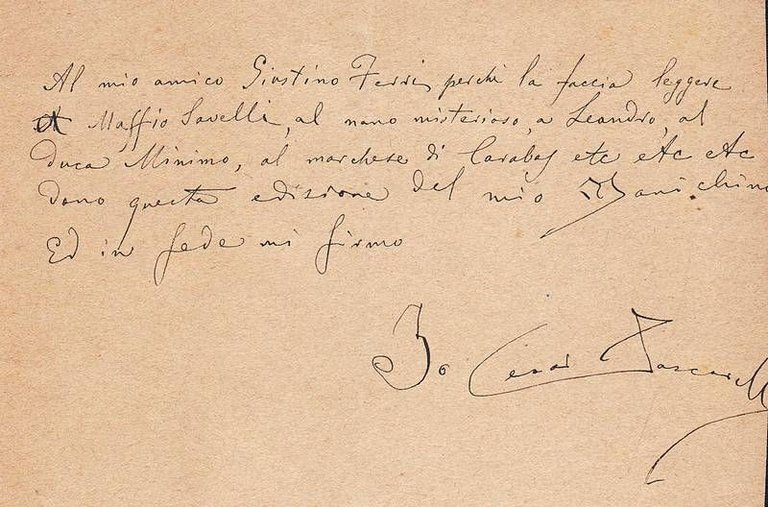 Al mio amico Giustino Ferri, perchè la faccia leggere
A Maffio Savelli, al nano misterioso, a Leandro, al
Duca Minimo, al marchese di Carabas etc etc etc
dono questa edizione del mio Manichino
Ed in fede mi firmo
Io Cesar Pascarell